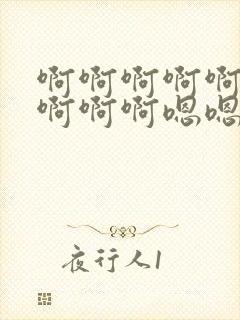 啊啊啊啊啊
啊啊啊嗯嗯
夜行人1